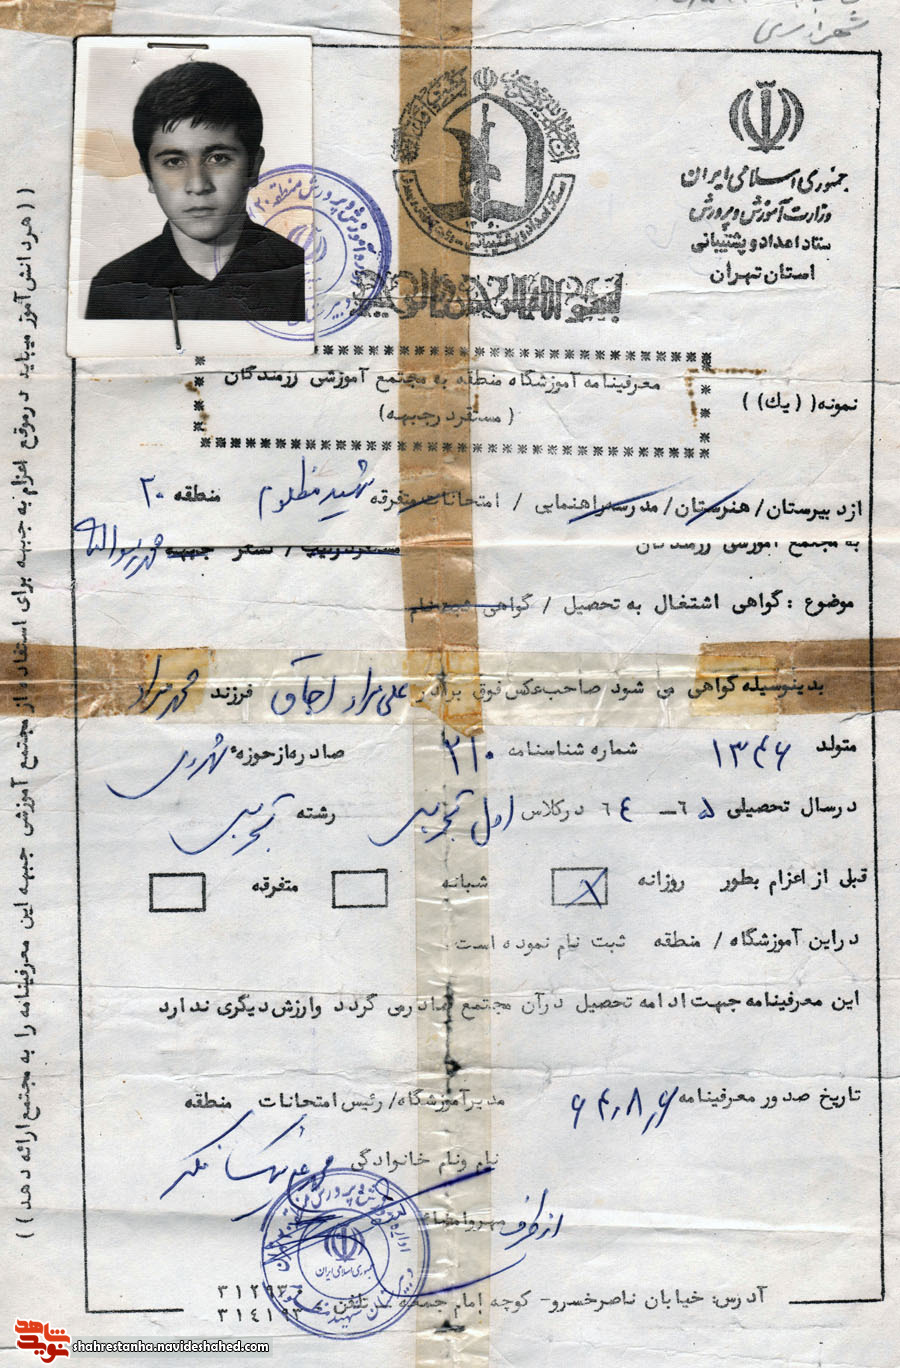 شهرری
جمهوری اسلامی ایران
وزارت آموزش و پرورش
ستاد اعداد و پشتیبانی
استان تهران
بسم الله الرحمن الرحیم
نمونه ((یک))
معرفینامه آموزشگاه منطقه به مجتمع آموزشی رزمندگان
(مستقر در جبهه)
از دبیرستان / هنرستان / مدرسه راهنمایی / امتحانات متفرقه شهید مظلوم منطقه ۲۰
به مجتمع آموزشی رزمندگان محمد رسول الله
موضوع : گواهی اشتغال به تحصیل / گواهی ثبت نام
بدینوسیله گواهی می شود صاحب عکس فوق برادر علی مراد اجاق فرزند محمد مراد
متولد ۱۳۴۶ شماره شناسنامه ۲۱۰ صادره از حوزه شهرری
در سال تحصیلی ۶۵ ــ ۶۴ در کلاس اول تجربی رشته تجربی
قبل از اعزام بطور روزانه شبانه متفرقه
در این آموزشگاه / منطقه ثبت نام نموده است.
این معرفینامه جهت ادامه تحصیل در آن مجتمع صادر می گردد و ارزش دیگری ندارد
تاریخ صدور معرفینامه ۶۴٫۸٫۶ مدیر آموزشگاه / رئیس امتحانات منطقه
نام و نام خانوادگی
از طرف مهر و امضاء
آدرس: خیابان ناصرخسرو- کوچه امام جمعه ــ تلفن ۳۱۲۹۳۰
۳۱۴۱۹۳
((هر دانش آموز میباید در موقع اعزام به جبهه برای استفاده از مجتمع آموزشی جبهه این معرفینامه را به مجتمع ارائه دهد))
نوید شاهد
shahrestanha.navideshahed.com